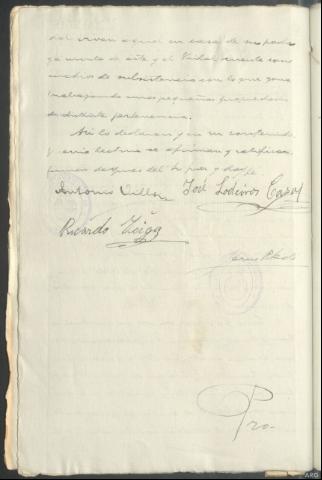 del viven aquel en casa de su padre
y a cuenta de este y el Vidal cuenta como
medios de subsistencia con lo que gana
trabajando unas pequeñas propiedades
de distinta pertenencia.
Así lo declaran y en su contenido
y previa lectura se afirman y ratifican
firman despues del Sr Juez y doy fe
Antonio Villar José Lodeiros
Ricardo Veiga
Pro.
ARG